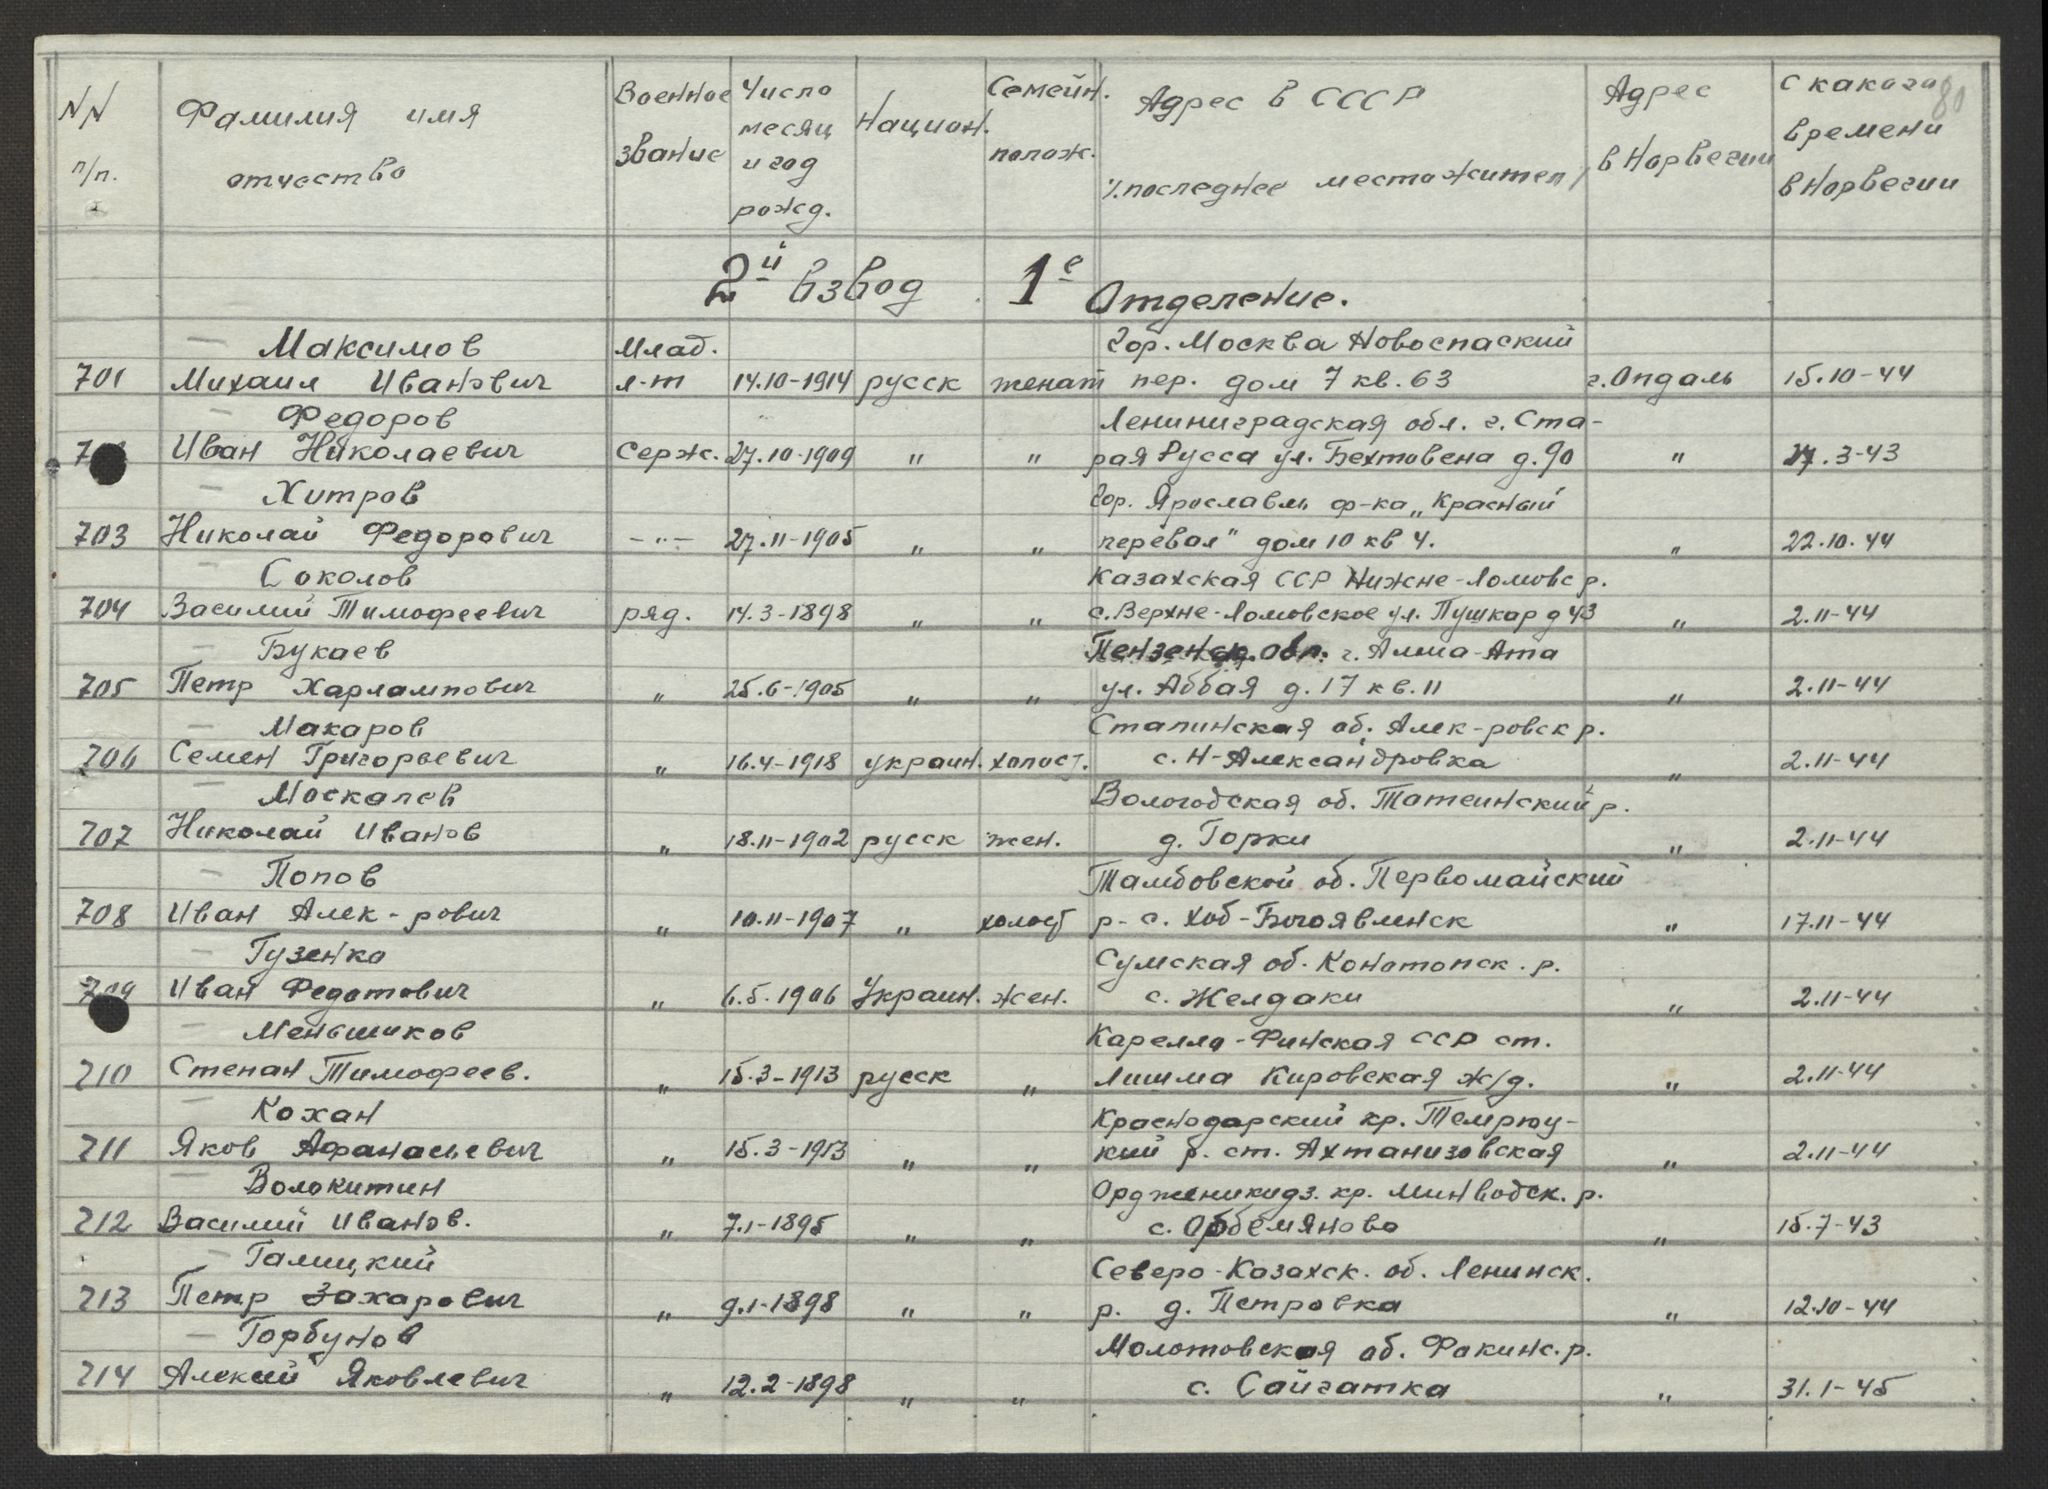 NN п/п. Фамилия имя отчество Военное звание Число месяц и год рожд. Национ. Семейн. полож. Адрес в СССР /последнее местожител/ Адрес в Норвегии С какого времени в Норвегии
80
2й взвод 1е Отделение.
Максимов Млад. Гор. Москва Новоспаский
701 Михаил Иванович л-т 14.10-1914 русск женат пер. дом 7 кв. 63 г. Опдаль 15.10-44
Федоров Ленинградская обл. г. Ста-
7 Иван Николаевич Серж. 27.10-1909 " " рая Русса ул. Бехтовена д. 90 " 27.3-43
Хитров Гор. Ярославль ф-ка „Красный
703 Николай Федорович -"- 27.11-1905 " " перевал" дом 10 кв 4. " 22.10.44
Соколов Казахская ССР Нижне-Ломовс р.
704 Василий Тимофеевич ряд. 14.3-1898 " " с. Верхне-Ломовское ул. Пушкар д 43 " 2.11-44
Букаев Пензенск. обл. г. Алма-Ата
705 Петр Харлампович " 25.6-1905 " " ул. Аббая д. 17 кв. 11 " 2.11-44
Макаров Сталинская об. Алек-ровск р.
706 Семен Григорьевич " 16.4-1918 украин. холост. с. Н-Александровка " 2.11-44
Москалев Вологодская об. Татеинский р.
707 Николай Иванов " 18.11-1902 русск жен. д. Горки " 2.11-44
Попов Тамбовской об. Первомайский
708 Иван Алек-рович " 10.11-1907 " холост р-с. Хоб-Богоявленск " 17.11-44
Гузенко Сумская об. Конотопск. р.
709 Иван Федотович " 6.5.1906 Украин. жен. с. Желдаки " 2.11-44
Меньшиков Карелло-Финская ССР ст.
710 Степан Тимофеев. " 15.3-1913 русск " Лишма Кировская ж/д. " 2.11-44
Кохан Краснодарский кр. Темрюу-
711 Яков Афанасьевич " 15.3-1913 " " кий р. ст. Ахтанизовская " 2.11-44
Волокитин Ордженикидз. кр. Минводск. р.
712 Василий Иванов. " 7.1-1895 " " с. Орбемяново " 15.7-43
Галицкий Северо-Казахск. об. Ленинск.
713 Петр Захарович " 9.1-1898 " " р. д. Петровка " 12.10-44
Горбунов Молотовская об. Факинс. р.
714 Алексей Яковлевич " 12.2-1898 " " с. Сайгатка " 31.1-45